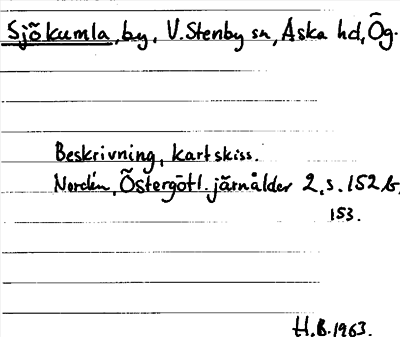 Sjökumla, by, V. Stenby sn, Aska hd, Ög.
Beskrivning, kartskiss.
Nordén, Östergötl. järnålder 2, s. 152 b,
153.
H.B. 1963.